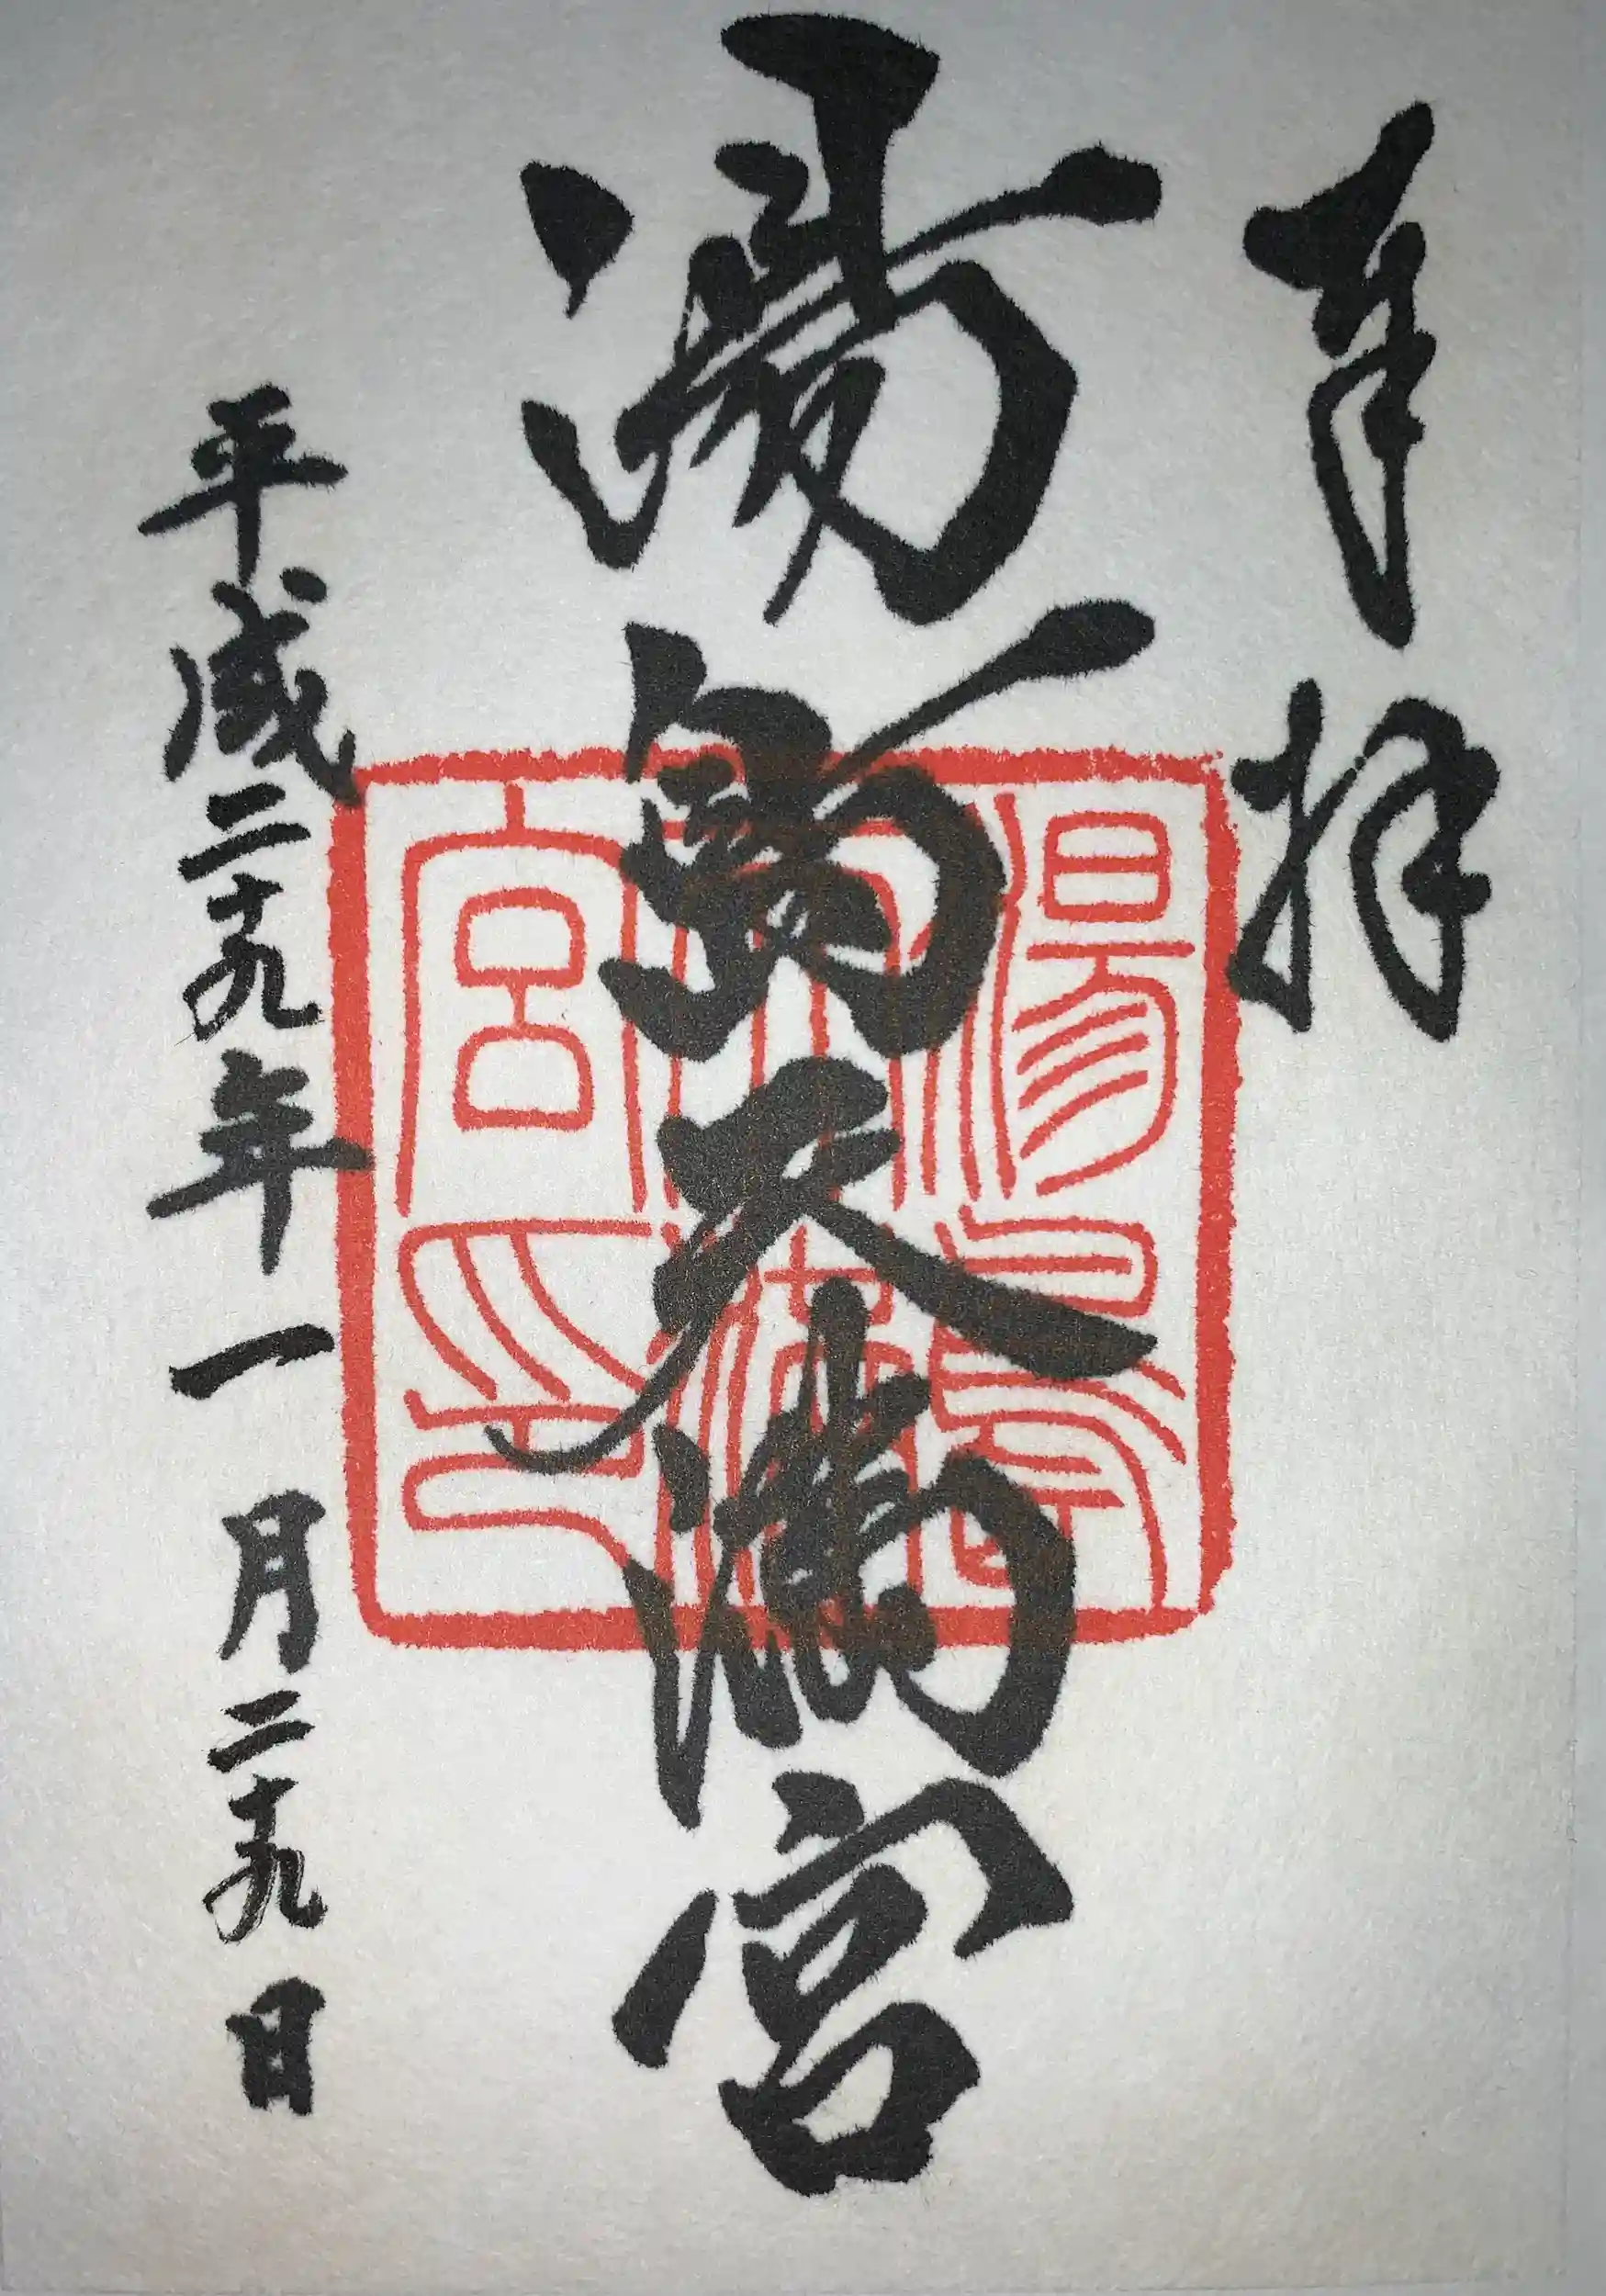 奉拝
湯島天満宮
湯島天満宮印
平成二十九年一月二十九日